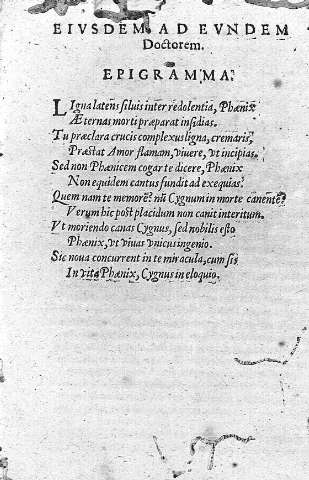 EIVSDEM AD EVNDEM
Doctorem.
EPIGRAMMA.
LIgna latens siluis inter redolentia, Phœnix
Æternas morti præparat insidias.
Tu præclara crucis complexus ligna, cremaris,
Præstat Amor flamam, viuere, vt incipias.
Sed non Phœnicem cogar te dicere, Phœnix
Non equidem cantus fundit ad exequias.
Quem nam te memorē? nū Cygnum in morte canentē?
Verum hic post placidum non canit interitum.
Vt moriendo canas Cygnus, sed nobilis esto
Phœnix, vt viuas vnicus ingenio.
Sic noua concurrent in te miracula, cum sis
In vita Phœnix, Cygnus in eloquio.